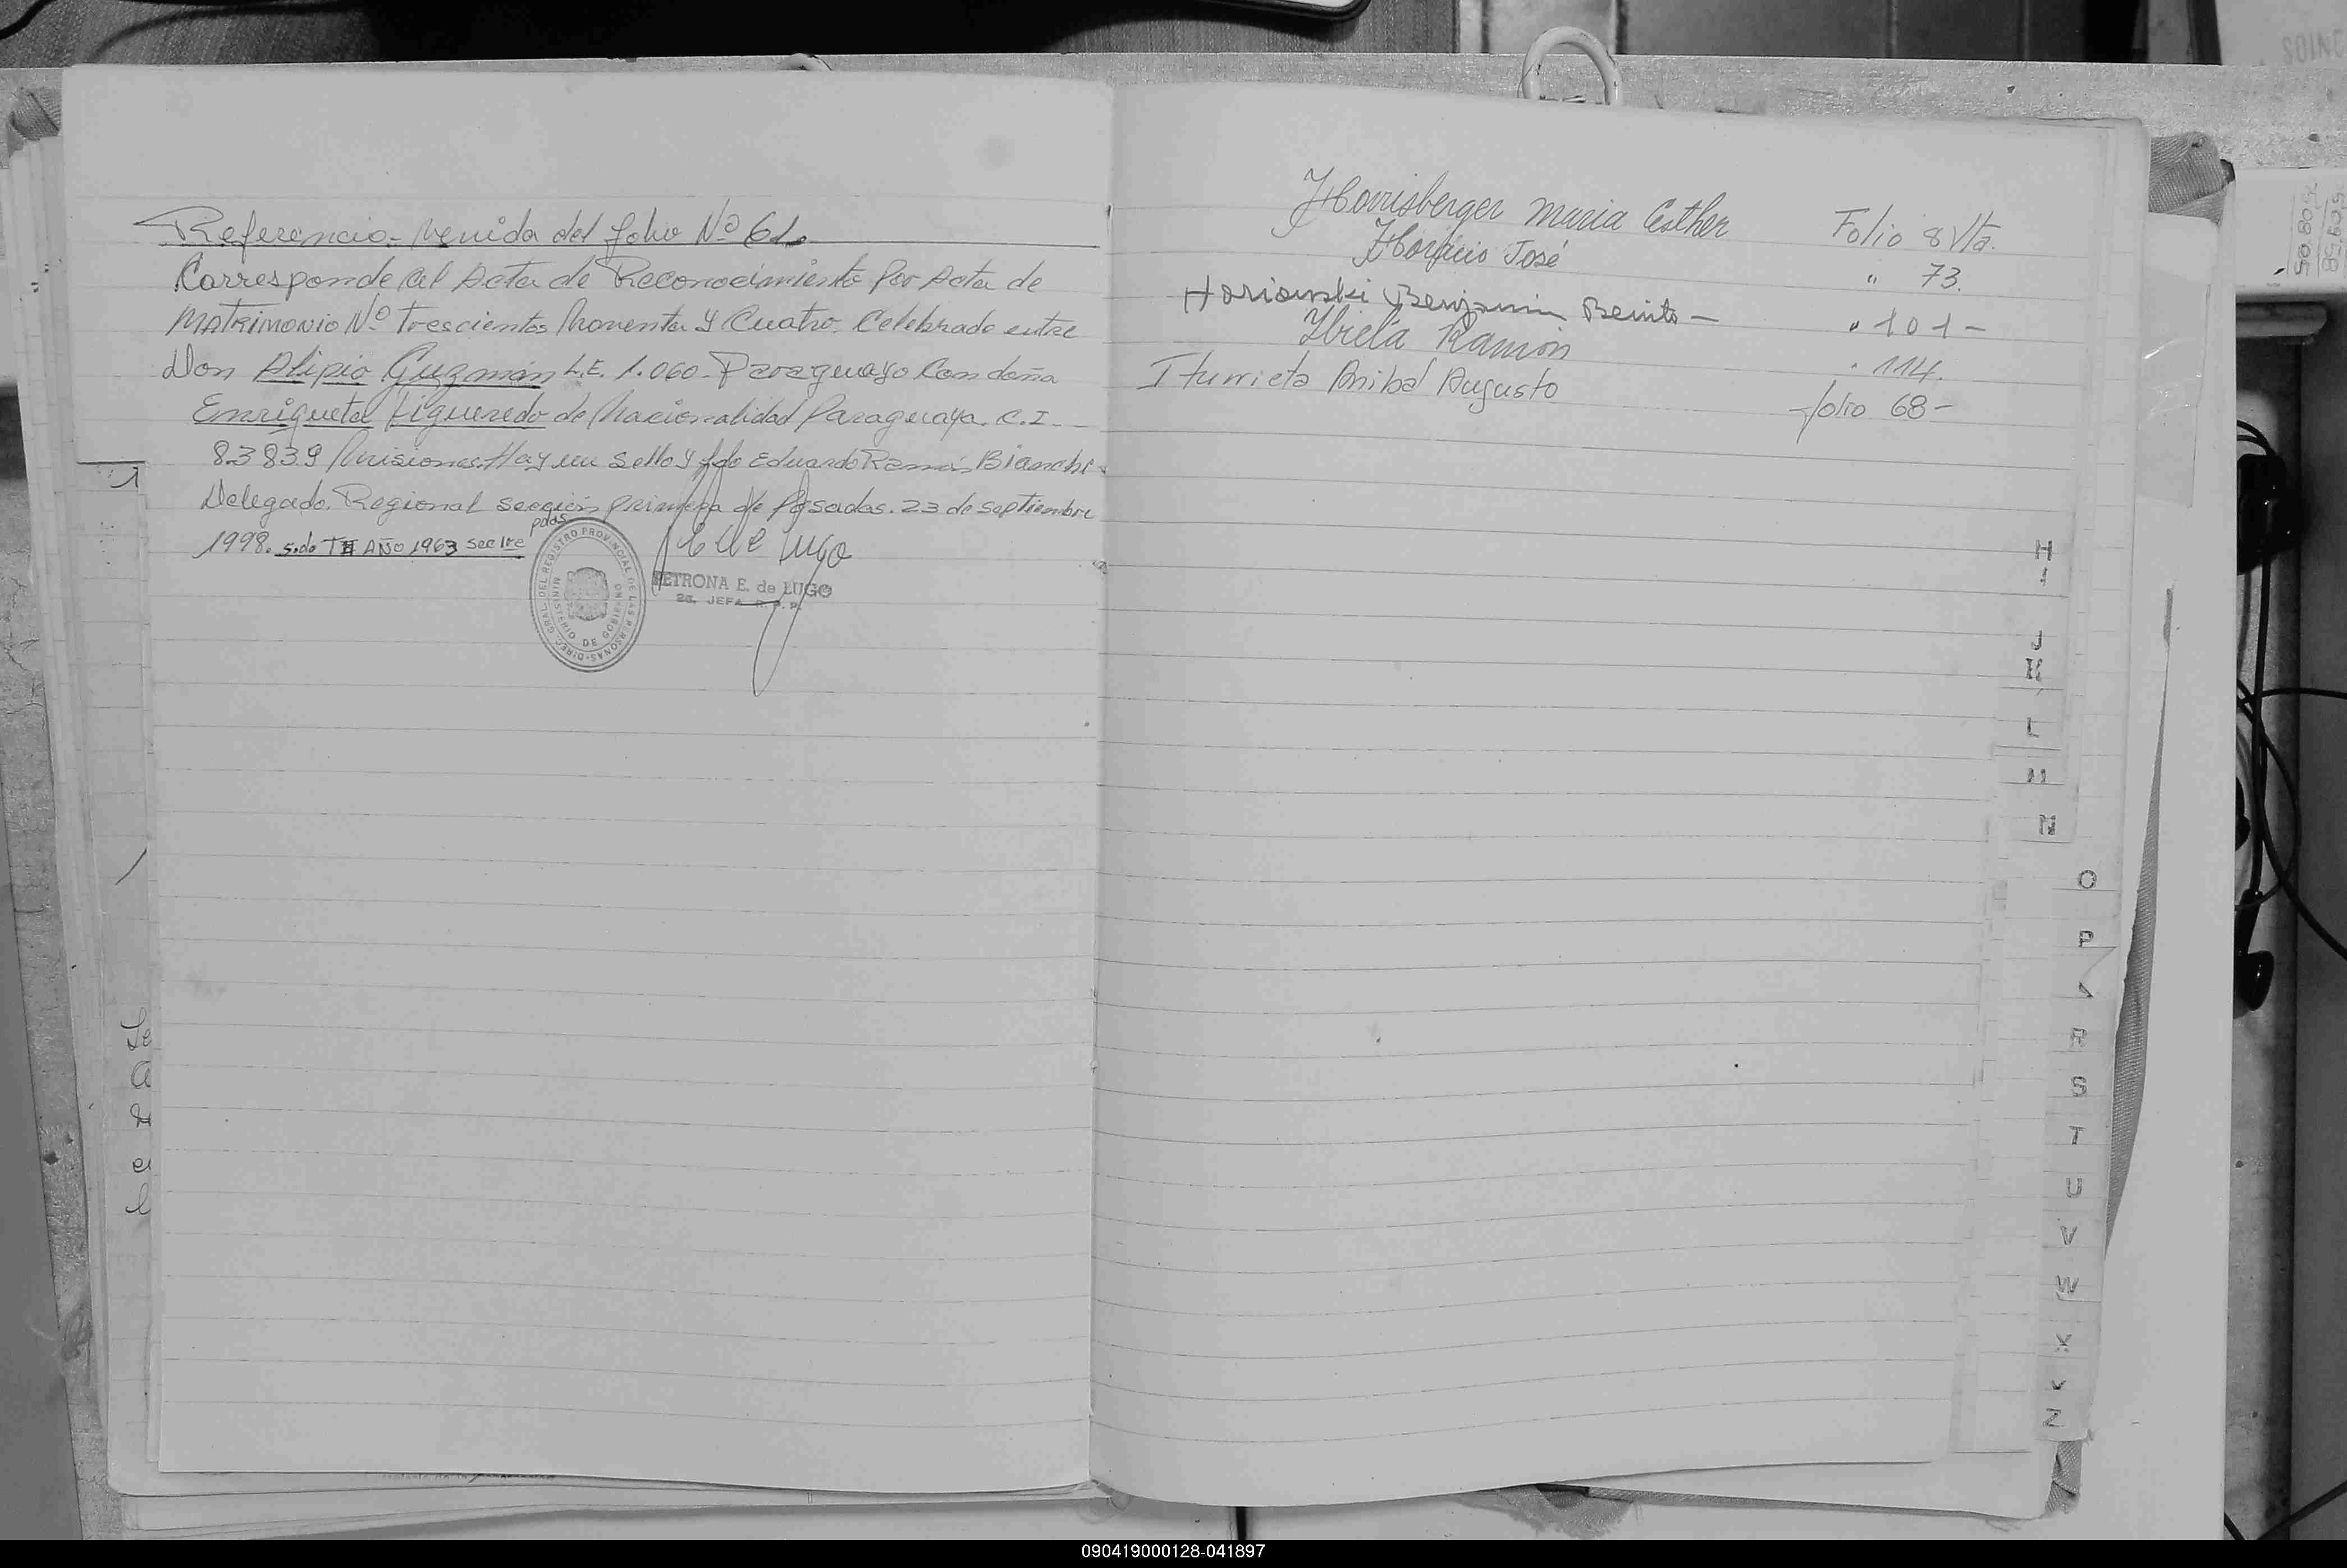 Referencia - venida del folio Nº 61.
Corresponde al Acta de Reconocimiento por Acta de
Matrimonio Nº Trescientos Noventa y Cuatro. Celebrado entre
Don Alipio Guzmán L.E. 1.060 - Paraguayo Con doña
Enriqueta Figueredo de Nacionalidad Paraguaya. C.I. -
83839 Misiones. Hay un sello y fdo Eduardo Ramón Bianchi
Delegado Regional sección primera de Posadas. 23 de septiembre
1998. AÑO 1963 sec 1re pdas
PETRONA E. de LUGO
2a. JEFA R. P. P.
DIREC. GRAL. DEL REGISTRO PROVINCIAL DE LAS PERSONAS
MINISTERIO DE GOBIERNO
Horrisberger Maria Esther Folio 8 Vta.
José " 73.
Horiowski Benjamin Benito - " 101 -
Ramón " 114.
Iturrieta Anibal Augusto folio 68 -
H
I
J
K
L
M
N
O
P
R
S
T
U
V
W
X
Z
090419000128-041897